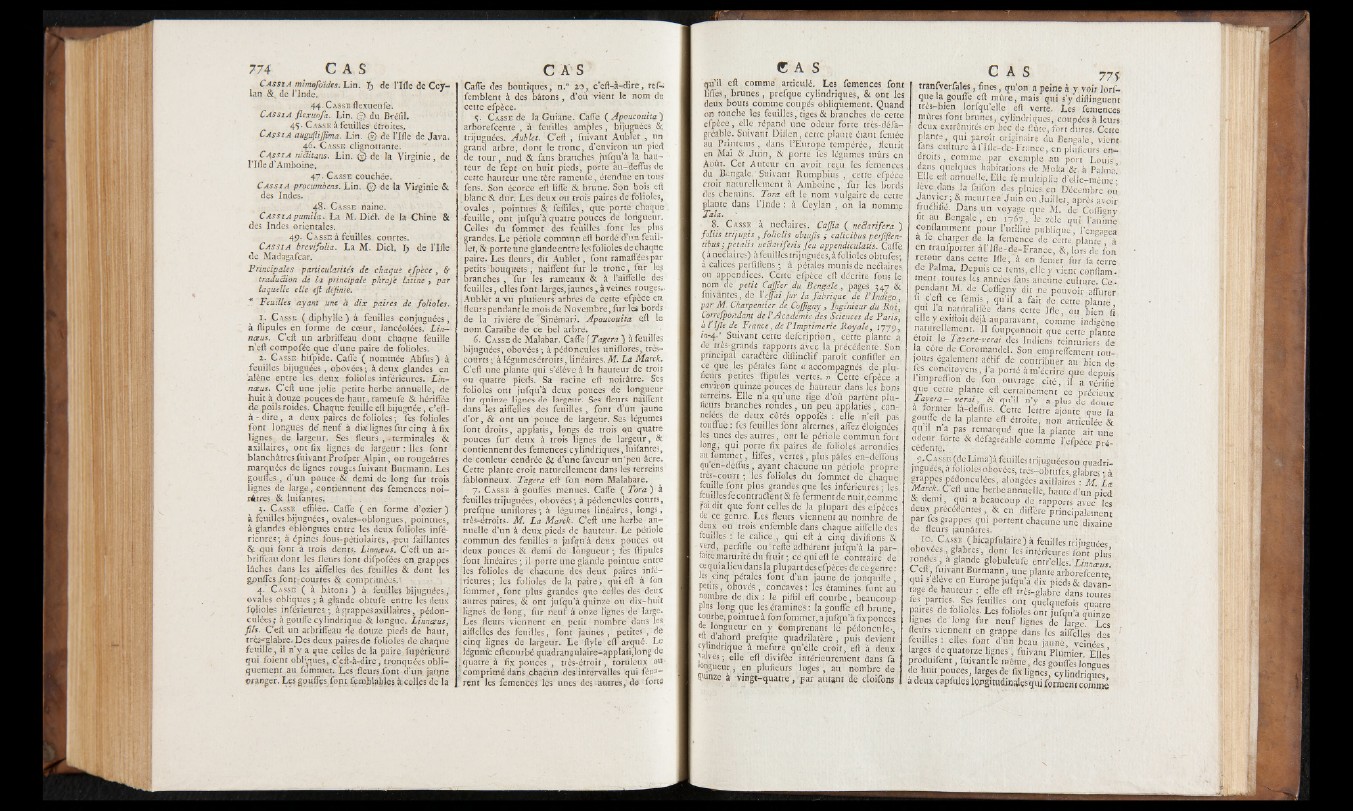 774 CAS
CASSIA mimusoïdes. Lin. ♄ de l'Isle de Cey-
lan & de l'Inde.
44. CASSE flexueuse.
CASSIA flexuosa. Lin. ☉ du Brésil.
45. CASSE à feuilles étroites.
CASSIA angustissima. Lin. ☉ de l'Isle de Java.
46. CASSE clignottante.
CASSIA nictitans. Lin. ☉ de la Virginie, de
l'Isle d'Amboine.
47. CASSE couchée.
CASSIA procumbens. Lin. ☉ de la Virginie &
des Indes.
48. CASSE naine.
CASSIA pumila. La M. Dict. de la Chine &
des Indes orientales.
49. CASSE à feuilles courtes.
CASSIA brevifolia. La M. Dict. ♄ de l'Isle
de Madagascar.
Principales particularités de chaque espèce, &
traduction de la principale phrase latine, par
laquelle elle est définie.
* Feuilles ayant une à dix paires de folioles.
1. CASSE (diphylle) à feuilles conjuguées,
à stipules en forme de cœur, lancéolées. Lin-
næus. C'est un arbrisseau dont chaque feuille
n'est composée que d'une paire de folioles.
2. CASSE hispide. Casse (nommée Absus) à
feuilles bijuguées, obovées; à deux glandes en
alêne entre les deux folioles inférieures. Lin-
næus. C'est une jolie petite herbe annuelle, de
huit à douze pouces de haut, rameuse & hérissée
de poils roides. Chaque feuille est bijuguée, c'est-
à-dire, a deux paires de folioles; ses folioles
sont longues de neuf à dix lignes sur cinq à six
lignes de largeur. Ses fleurs, terminales &
axillaires, ont six lignes de largeur: elles sont
blanchâtres suivant Prosper Alpin, ou rougeâtres
marquées de lignes rouges suivant Burmann. Les
gousses, d'un pouce & demi de long sur trois
lignes de large, contiennent des semences noi-
râtres & luisantes.
3. CASSE effilée. Casse (en forme d'ozier)
à feuilles bijuguées, ovales-oblongues, pointues,
à glandes oblongues entre les deux folioles infé-
rieures; à épines sous-pétiolaires, peu saillantes
& qui sont à trois dents. Linnæus. C'est un ar-
brisseau dont les fleurs sont disposées en grappes
lâches dans les aisselles des feuilles & dont les
gousses sont courtes & comprimées.
4. CASSE (à bâtons) à feuilles bijuguées,
ovales obliques; à glande obtuse entre les deux
folioles inférieures; à grappes axillaires, pédon-
culées; à gousse cylindrique & longue. Linnæus,
fils. C'est un arbrisseau de douze pieds de haut,
très-glabre. Des deux paires de folioles de chaque
feuille, il n'y a que celles de la paire supérieure
qui soient obliques, c'est-à-dire, tronquées obli-
quement au sommet. Les fleurs sont d'un jaune
oranger. Les gousses sont semblables à celles de la
CAS
Casse des boutiques, n.° 20, c'est-à-dire, res-
semblent à des bâtons, d'où vient le nom de
cette espèce.
5. CASSE de la Guiane. Casse (Apoucouita)
arborescente, à feuilles amples, bijuguées &
trijuguées. Aublet. C'est, suivant Aublet, un
grand arbre, dont le tronc, d'environ un pied
de tour, nud & sans branches jusqu'à la hau-
teur de sept ou huit pieds, porte au-dessus de
cette hauteur une tête rameuse, étendue en tous
sens. Son écorce est lisse & brune. Son bois est
blanc & dur. Les deux ou trois paires de folioles,
ovales, pointues & sessiles, que porte chaque
feuille, ont jusqu'à quatre pouces de longueur.
Celles du sommet des feuilles sont les plus
grandes. Le pétiole commun est bordé d'un feuil-
let, & porte une glande entre les folioles de chaque
paire. Les fleurs, dit Aublet, sont ramassées par
petits bouquets, naissent sur le tronc, sur les
branches, sur les rameaux & à l'aisselle des
feuilles, elles sont larges, jaunes, à veines rouges.
Aublet a vu plusieurs arbres de cette espèce en
fleurs pendant le mois de Novembre, sur les bords
de la rivière de Sinémari. Apoucouita est le
nom Caraïbe de ce bel arbre.
6. CASSE de Malabar. Casse (Tagera) à feuilles
bijuguées, obovées; à pédoncules uniflores, très-
courts; à légumes étroits, linéaires. M. La Marck.
C'est une plante qui s'élève à la hauteur de trois
ou quatre pieds. Sa racine est noirâtre. Ses
folioles ont jusqu'à deux pouces de longueur
sur quinze lignes de largeur. Ses fleurs naissent
dans les aisselles des feuilles, sont d'un jaune
d'or, & ont un pouce de largeur. Ses légumes
sont droits, applatis, longs de trois ou quatre
pouces sur deux à trois lignes de largeur, &
contiennent des semences cylindriques, luisantes,
de couleur cendrée & d'une saveur un peu âcre.
Cette plante croît naturellement dans les terreins
sablonneux. Tagera est son nom Malabare.
7. CASSE à gousses menues. Casse (Tora) à
feuilles trijuguées, obovées; à pédoncules courts,
presque uniflores; à légumes linéaires, longs,
très-étroits. M. La Marck. C'est une herbe an-
nuelle d'un à deux pieds de hauteur. Le pétiole
commun des feuilles a jusqu'à deux pouces ou
deux pouces & demi de longueur; ses stipules
sont linéaires; il porte une glande pointue entre
les folioles de chacune des deux paires infé-
rieures; les folioles de la paire, qui est à son
sommet, sont plus grandes que celles des deux
autres paires, & ont jusqu'à quinze ou dix-huit
lignes de long, sur neuf à onze lignes de large.
Les fleurs viennent en petit nombre dans les
aisselles des feuilles, sont jaunes, petites, de
cinq lignes de largeur. Le style est arqué. Le
légume est courbé quadrangulaire-applati, long de
quatre à six pouces, très-étroit, toruleux ou
comprimé dans chacun des intervalles qui sépa-
rent les semences les unes des autres, de sorte
CAS
qu'il est comme articulé. Les semences sont
lisses, brunes, presque cylindriques, & ont les
deux bouts comme coupés obliquement. Quand
on touche les feuilles, tiges & branches de cette
espèce, elle répand une odeur forte très-désa-
gréable. Suivant Dillen, cette plante étant semée
au Printems, dans l'Europe tempérée, fleurit
en Mai & Juin, & porte les légumes mûrs en
Août. Cet Auteur en avoit reçu les semences
du Bengale. Suivant Rumphius, cette espèce
croît naturellement à Amboine, sur les bords
des chemins. Tora est le nom vulgaire de cette
plante dans l'Inde: à Ceylan, on la nomme
Tala.
8. CASSE à nectaires. Cassia (nectarifera)
foliis trijugis, foliolis obtusis; calicibus persisten-
tibus; petalis nectariferis seu appendiculatis. Casse
(à nectaires) à feuilles trijuguées, à folioles obtuses;
à calices persistens; à pétales munis de nectaires
ou appendices. Cette espèce est décrite sous le
nom de petit Cassier du Bengale, pages 347 &
suivantes, de l'essai sur la fabrique de l'Indigo,
par M. Charpentier de Cossigny, Ingénieur du Roi,
Correspondant de l'Académie des Sciences de Paris,
à l'Isle de France, de l'Imprimerie Royale, 1779,
in-4.° Suivant cette description, cette plante a
de très-grands rapports avec la précédente. Son
principal caractère distinctif paroît consister en
ce que les pétales sont « accompagnés de plu-
sieurs petites stipules vertes. » Cette espèce a
environ quinze pouces de hauteur dans les bons
terreins. Elle n'a qu'une tige d'où partent plu-
sieurs branches rondes, un peu applaties, can-
nelées de deux côtés opposés: elle n'est pas
touffue: ses feuilles sont alternes, assez éloignées
les unes des autres, ont le pétiole commun fort
long, qui porte six paires de folioles arrondies
au sommet, lisses, vertes, plus pâles en-dessous
qu'en-dessus, ayant chacune un pétiole propre
très-court; les folioles du sommet de chaque
feuille sont plus grandes que les inférieures; les
feuilles se contractent & se ferment de nuit, comme
j'ai dit que font celles de la plupart des espèces
de ce genre. Les fleurs viennent au nombre de
deux ou trois ensemble dans chaque aisselle des
feuilles: le calice, qui est à cinq divisions &
verd, persiste ou reste adhérent jusqu'à la par-
faite maturité du fruit; ce qui est le contraire de
ce qui a lieu dans la plupart des espèces de ce genre:
les cinq pétales sont d'un jaune de jonquille,
petits, obovés, concaves: les étamines sont au
nombre de dix: le pistil est courbe, beaucoup
plus long que les étamines: la gousse est brune,
courbe, pointue à son sommet, a jusqu'à six pouces
de longueur en y comprenant le pédoncule,
est d'abord presque quadrilatère, puis devient
cylindrique à mesure qu'elle croît, est à deux
valves; elle est divisée intérieurement dans sa
longueur, en plusieurs loges, au nombre de
quinze à vingt-quatre, par autant de cloisons
CAS 775
transversales, fines, qu'on a peine à y voir lors-
que la gousse est mûre, mais qui s'y distinguent
très-bien lorsqu'elle est verte. Les semences
mûres sont brunes, cylindriques, coupées à leurs
deux extrêmités en bec de flûte, fort dures. Cette
plante, qui paroît originaire du Bengale, vient
sans culture à l'Isle-de-France, en plusieurs en-
droits, comme par exemple au port Louis,
dans quelques habitations de Moka & à Palma.
Elle est annuelle. Elle se multiplie d'elle-même;
lève dans la saison des pluies en Décembre ou
Janvier; & meurt en Juin ou Juillet, après avoir
fructifié. Dans un voyage que M. de Cossigny
fit au Bengale, en 1767, le zèle qui l'anime
constamment pour l'utilité publique, l'engagea
à se charger de la semence de cette plante, à
en transporter à l'Isle-de-France, &, lors de son
retour dans cette Isle, à en semer sur la terre
de Palma. Depuis ce tems, elle y vient constam-
ment toutes les années sans aucune culture. Ce-
pendant M. de Cossigny dit ne pouvoir assurer
si c'est ce semis, qu'il a fait de cette plante,
qui l'a naturalisée dans cette Isle, ou bien si
elle y existoit déjà auparavant, comme indigène
naturellement. Il soupçonnoit que cette plante
étoit le Tazera-verai des Indiens teinturiers de
la côte de Coromandel. Son empressement tou-
jours également actif de contribuer au bien de
ses concitoyens, l'a porté à m'écrire que depuis
l'impression de son ouvrage cité, il a vérifié
que cette plante est certainement ce précieux
Tayera-verai, & qu'il n'y a plus de doute
à former là-dessus. Cette lettre ajoute que la
gousse de la plante est étroite, non articulée &
qu'il n'a pas remarqué que la plante ait une
odeur forte & désagréable comme l'espèce pré-
cédente.
9. CASSE (de Lima) à feuilles trijuguées ou quadri-
juguées, à folioles obovées, très-obtuses, glabres; à
grappes pédonculées, alongées axillaires: M. La
Marck. C'est une herbe annuelle, haute d'un pied
& demi, qui a beaucoup de rapports avec les
deux précédentes, & en diffère principalement
par ses grappes qui portent chacune une dixaine
de fleurs jaunâtres.
10. CASSE (bicapsulaire) à feuilles trijuguées,
obovées, glabres, dont les intérieures sont plus
rondes, à glande globuleuse entr'elles. Linnæus.
C'est, suivant Burmann, une plante arborescente
qui s'élève en Europe jusqu'à dix pieds & davan-
tage de hauteur: elle est très-glabre dans toutes
ses parties. Ses feuilles ont quelquefois quatre
paires de folioles. Les folioles ont jusqu'à quinze
lignes de long sur neuf lignes de large. Les
fleurs viennent en grappe dans les aisselles des
feuilles: elles sont d'un beau jaune, veinées,
larges de quatorze lignes, suivant Plumier. Elles
produisent, suivant le même, des gousses longues
de huit pouces, larges de six lignes, cylindriques,
à deux capsules longitudinales qui forment comme